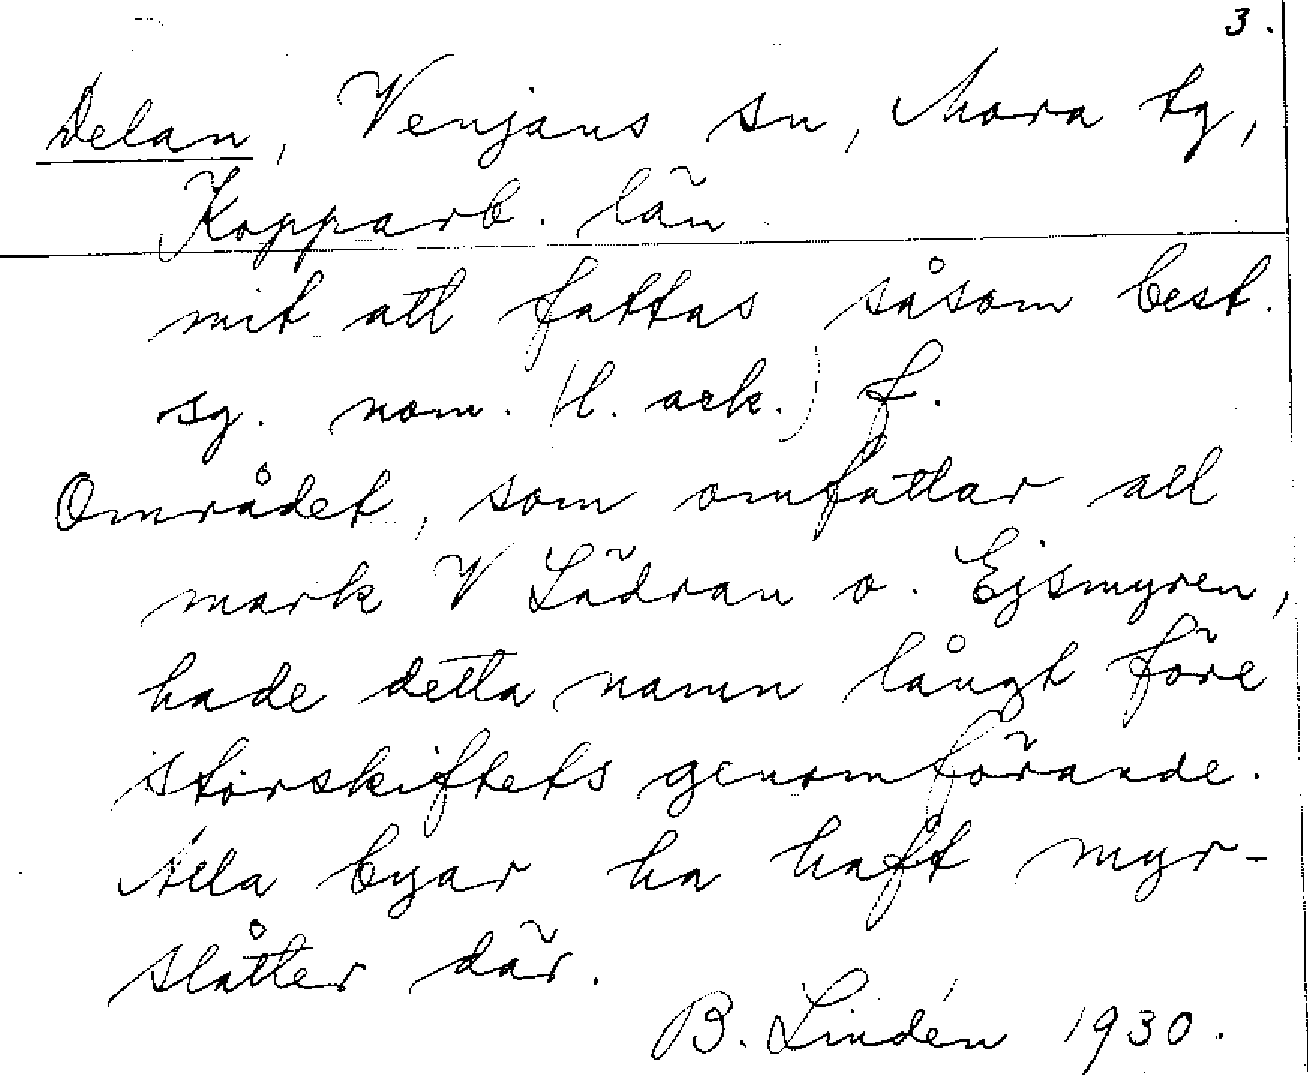 3.
Delan, Venjans sn, Mora tg,
Kopparb. län
mit att fattas såsom best.
sg. nom. (l. ack.) f.
Området, som omfattar all
mark V Lädran o. Ejsmyren,
hade detta namn långt före
storskiftets genomförande.
Alla byar ha haft myr-
slåtter där.
B. Lindén 1930.